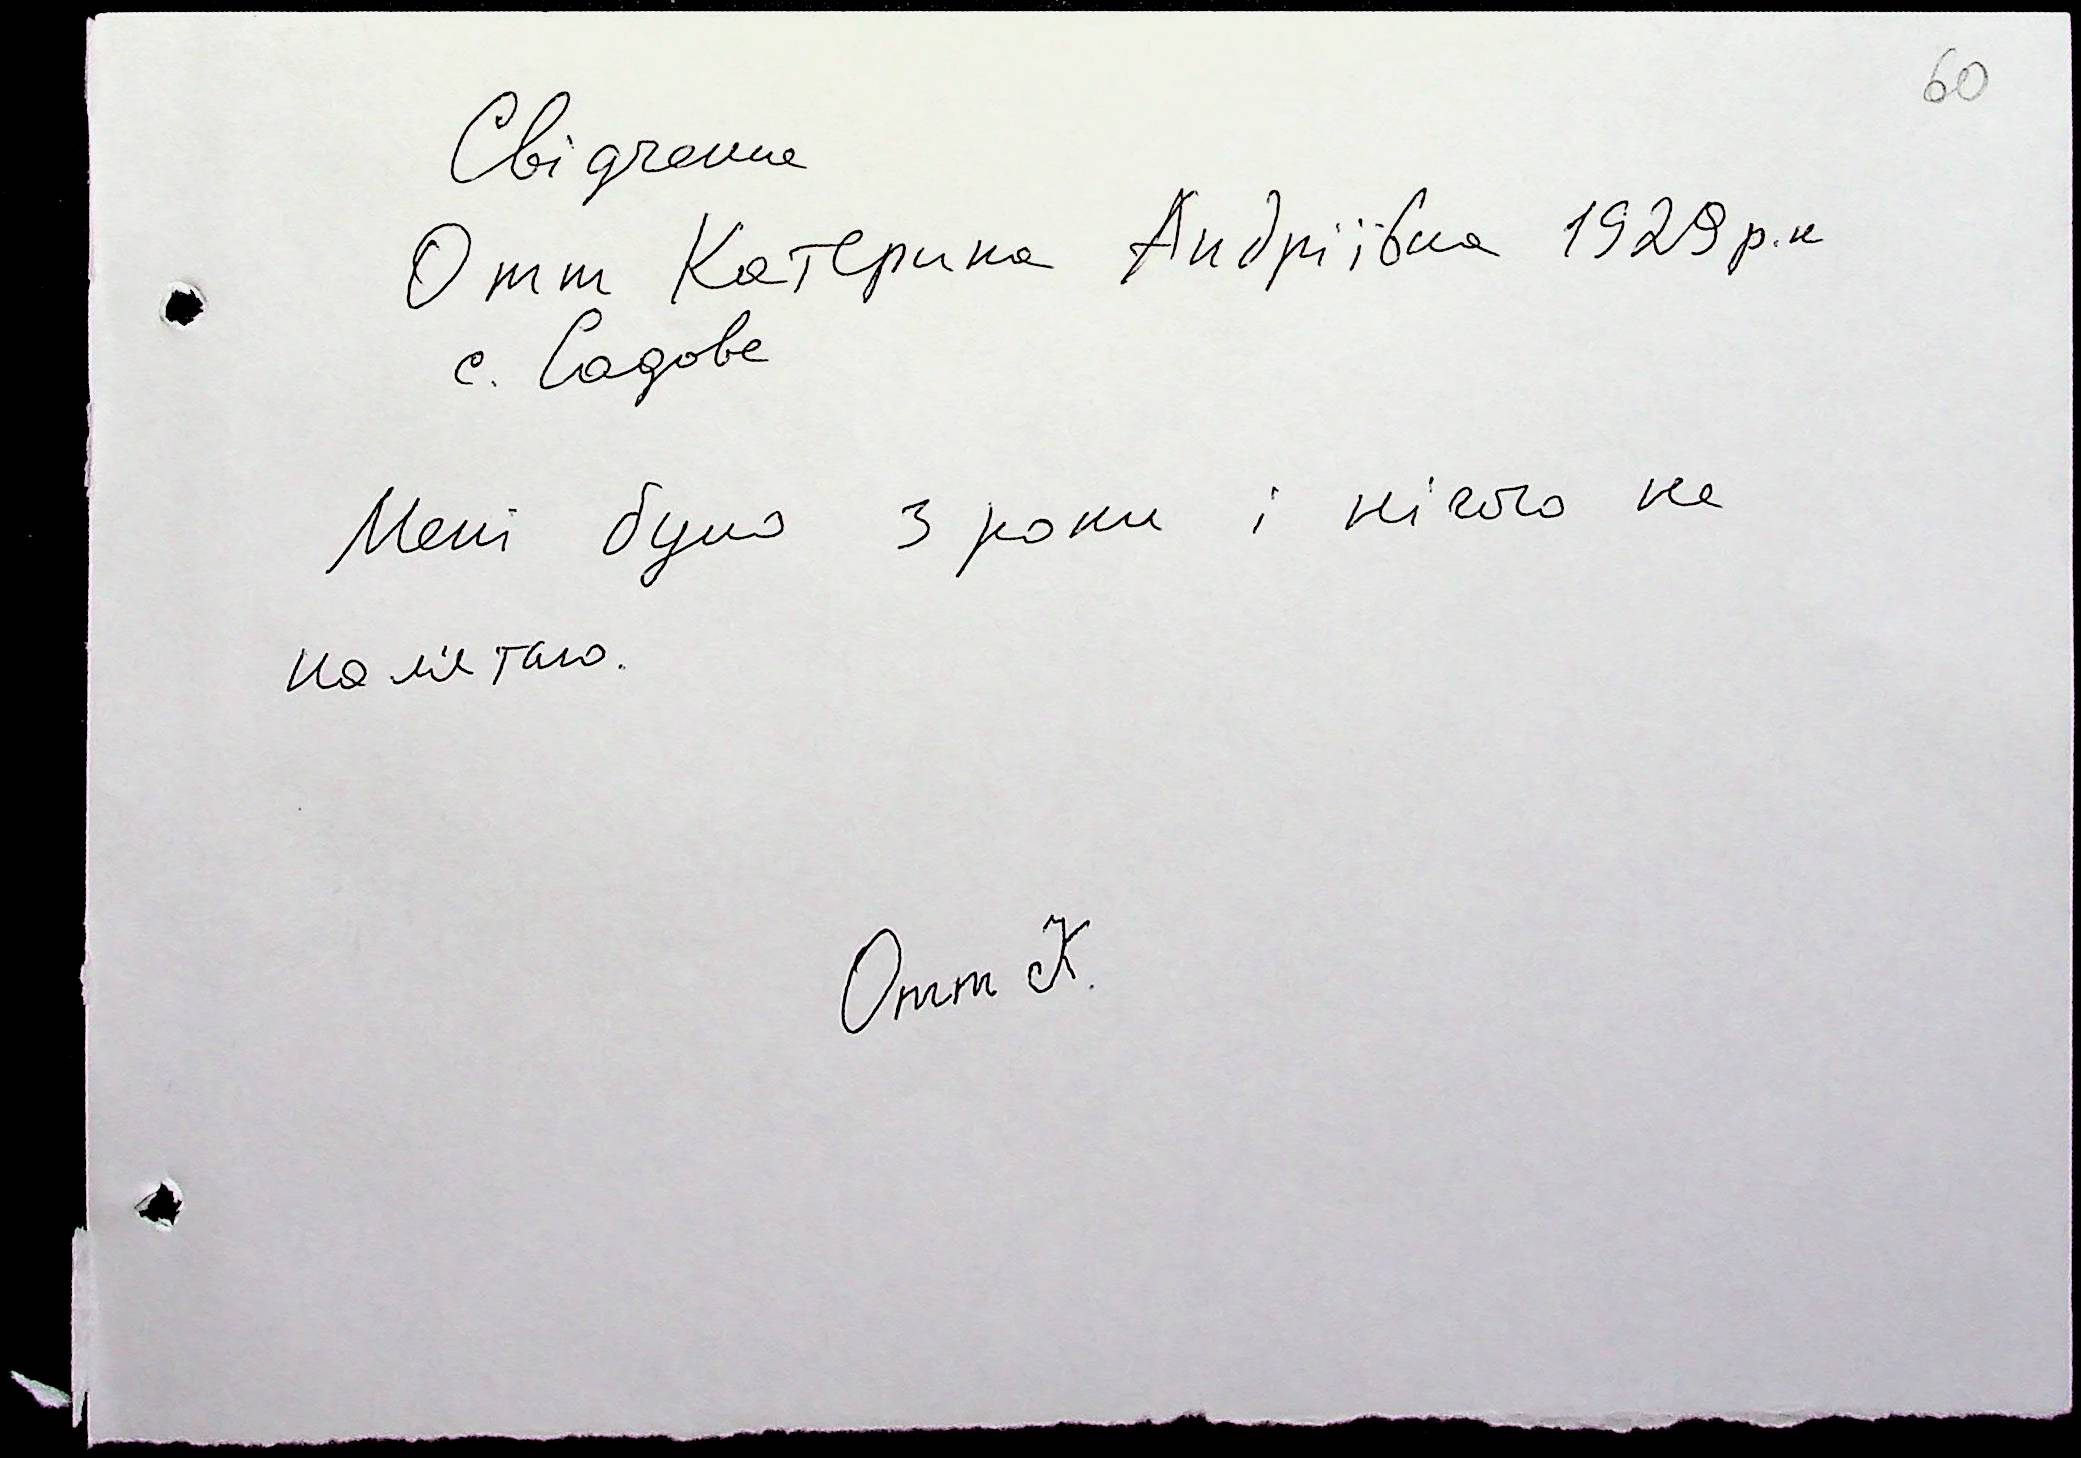 60
Свідчення
Отт Катерина Андріївна 1929 р.н
с. Садове
Мені було 3 роки і нічого не
пам'ятаю.
Отт К.